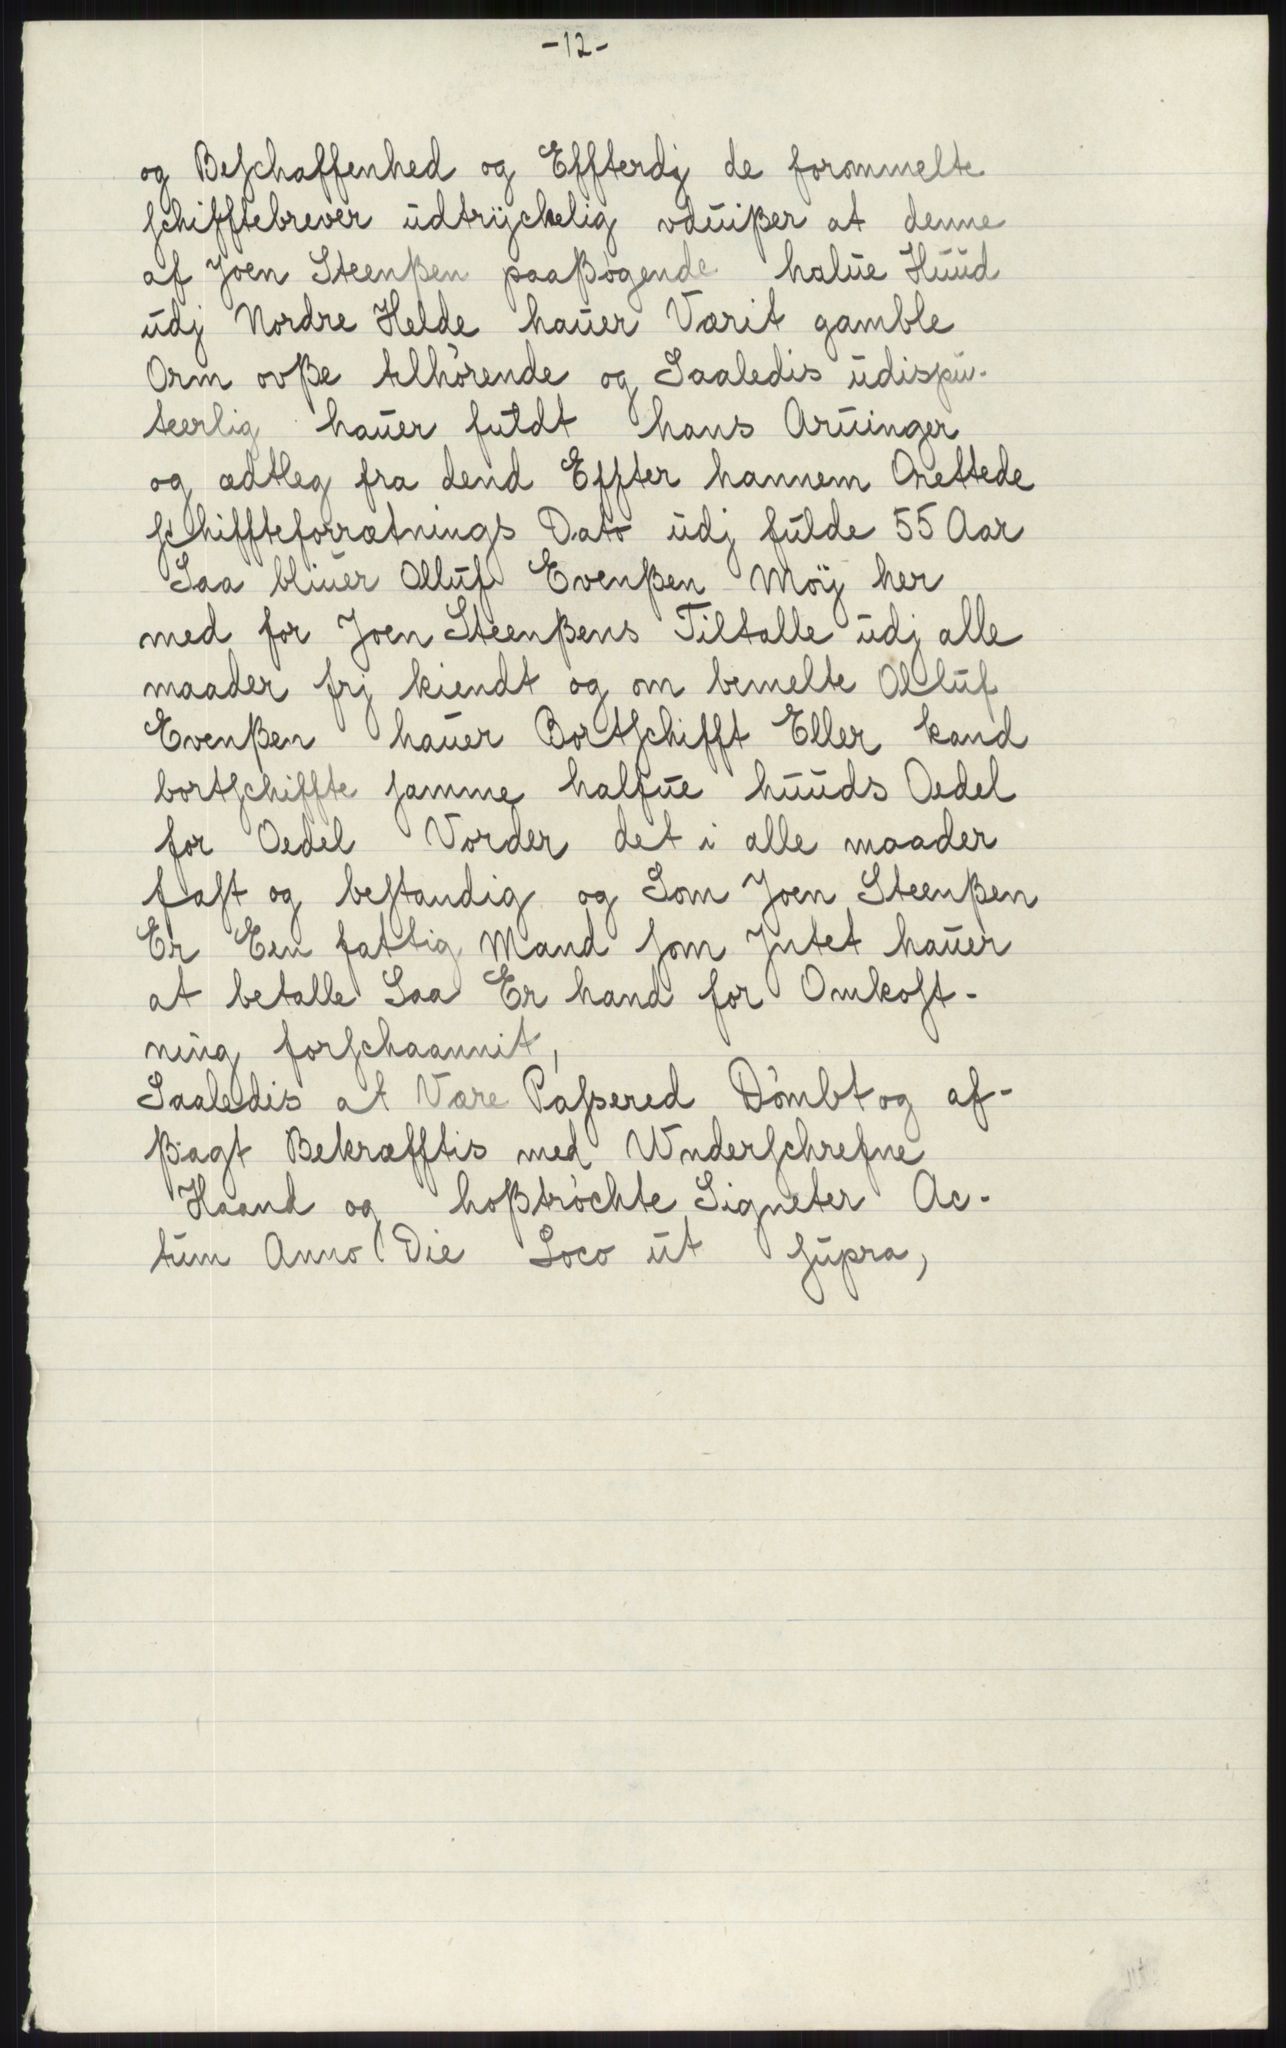 -12-
og Beſchaffenhed og Effterdj de forommelte
ſchifftebrever udtrÿckelig vduißer at denne
af Joen Steenßen paaßøgende halue Huud
udj Nordre Helde hauer Værit gamble
Orm ovße tilhørende og Saaledis udispu-
teerlig hauer fuldt hans Aruinger
og ædtleg fra dend Effter hannem Orettede
ſchiffteforrætnings Dato udj fulde 55 Aar
Saa bliuer Olluf Evenßen Møÿ her
med for Joen Steenßens Tiltalle udj alle
maader frj kiendt og om bemelte Olluf
Evenßen hauer Bortſchifft Eller kand
bortſchiffte ſamme halfue huuds Oedel
for Oedel Vorder det i alle maader
faſt og beſtandig og Som Joen Steenßen
Er Een fattig Mand ſom Jntet hauer
at betalle Saa Er hand for Omkoſt-
ning forſchaannit,
Saaledis at Være Paſsered Dømbt og af-
ßagt Bekræfftis med Wnderſchrefne
Haand og hoßtrøchte Signeter Ac-
tum Anno Die Loco ut ſupra,